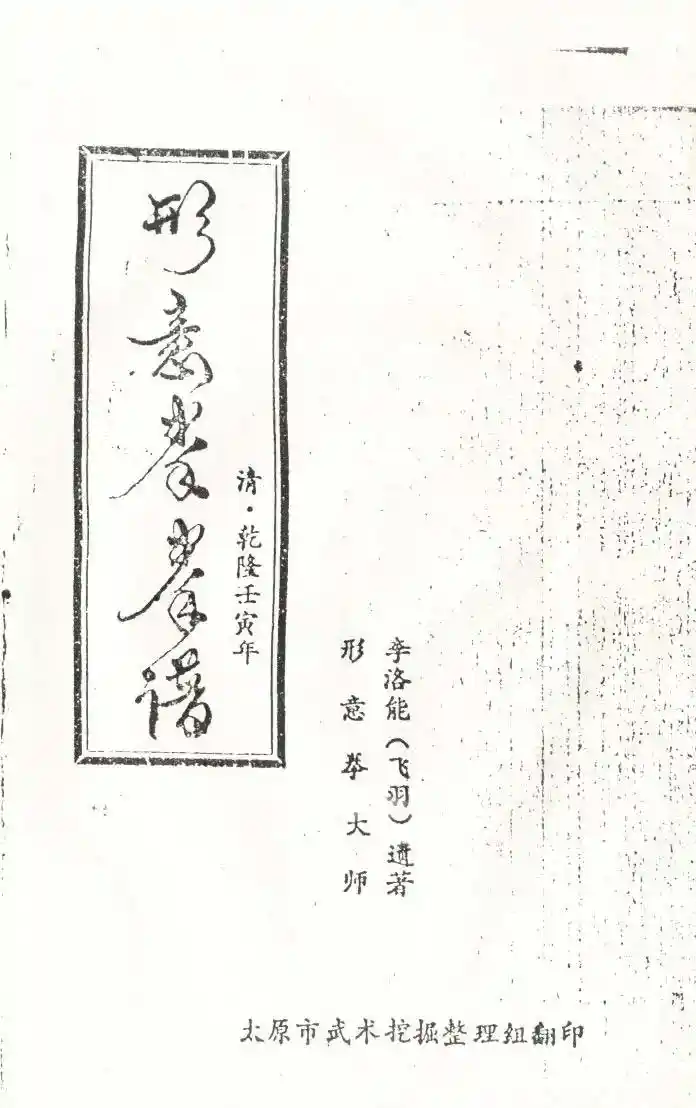 李洛能（飞羽）遗著
形意拳大师
清·乾隆壬寅年
形意拳拳谱
太原市武术挖掘整理组翻印